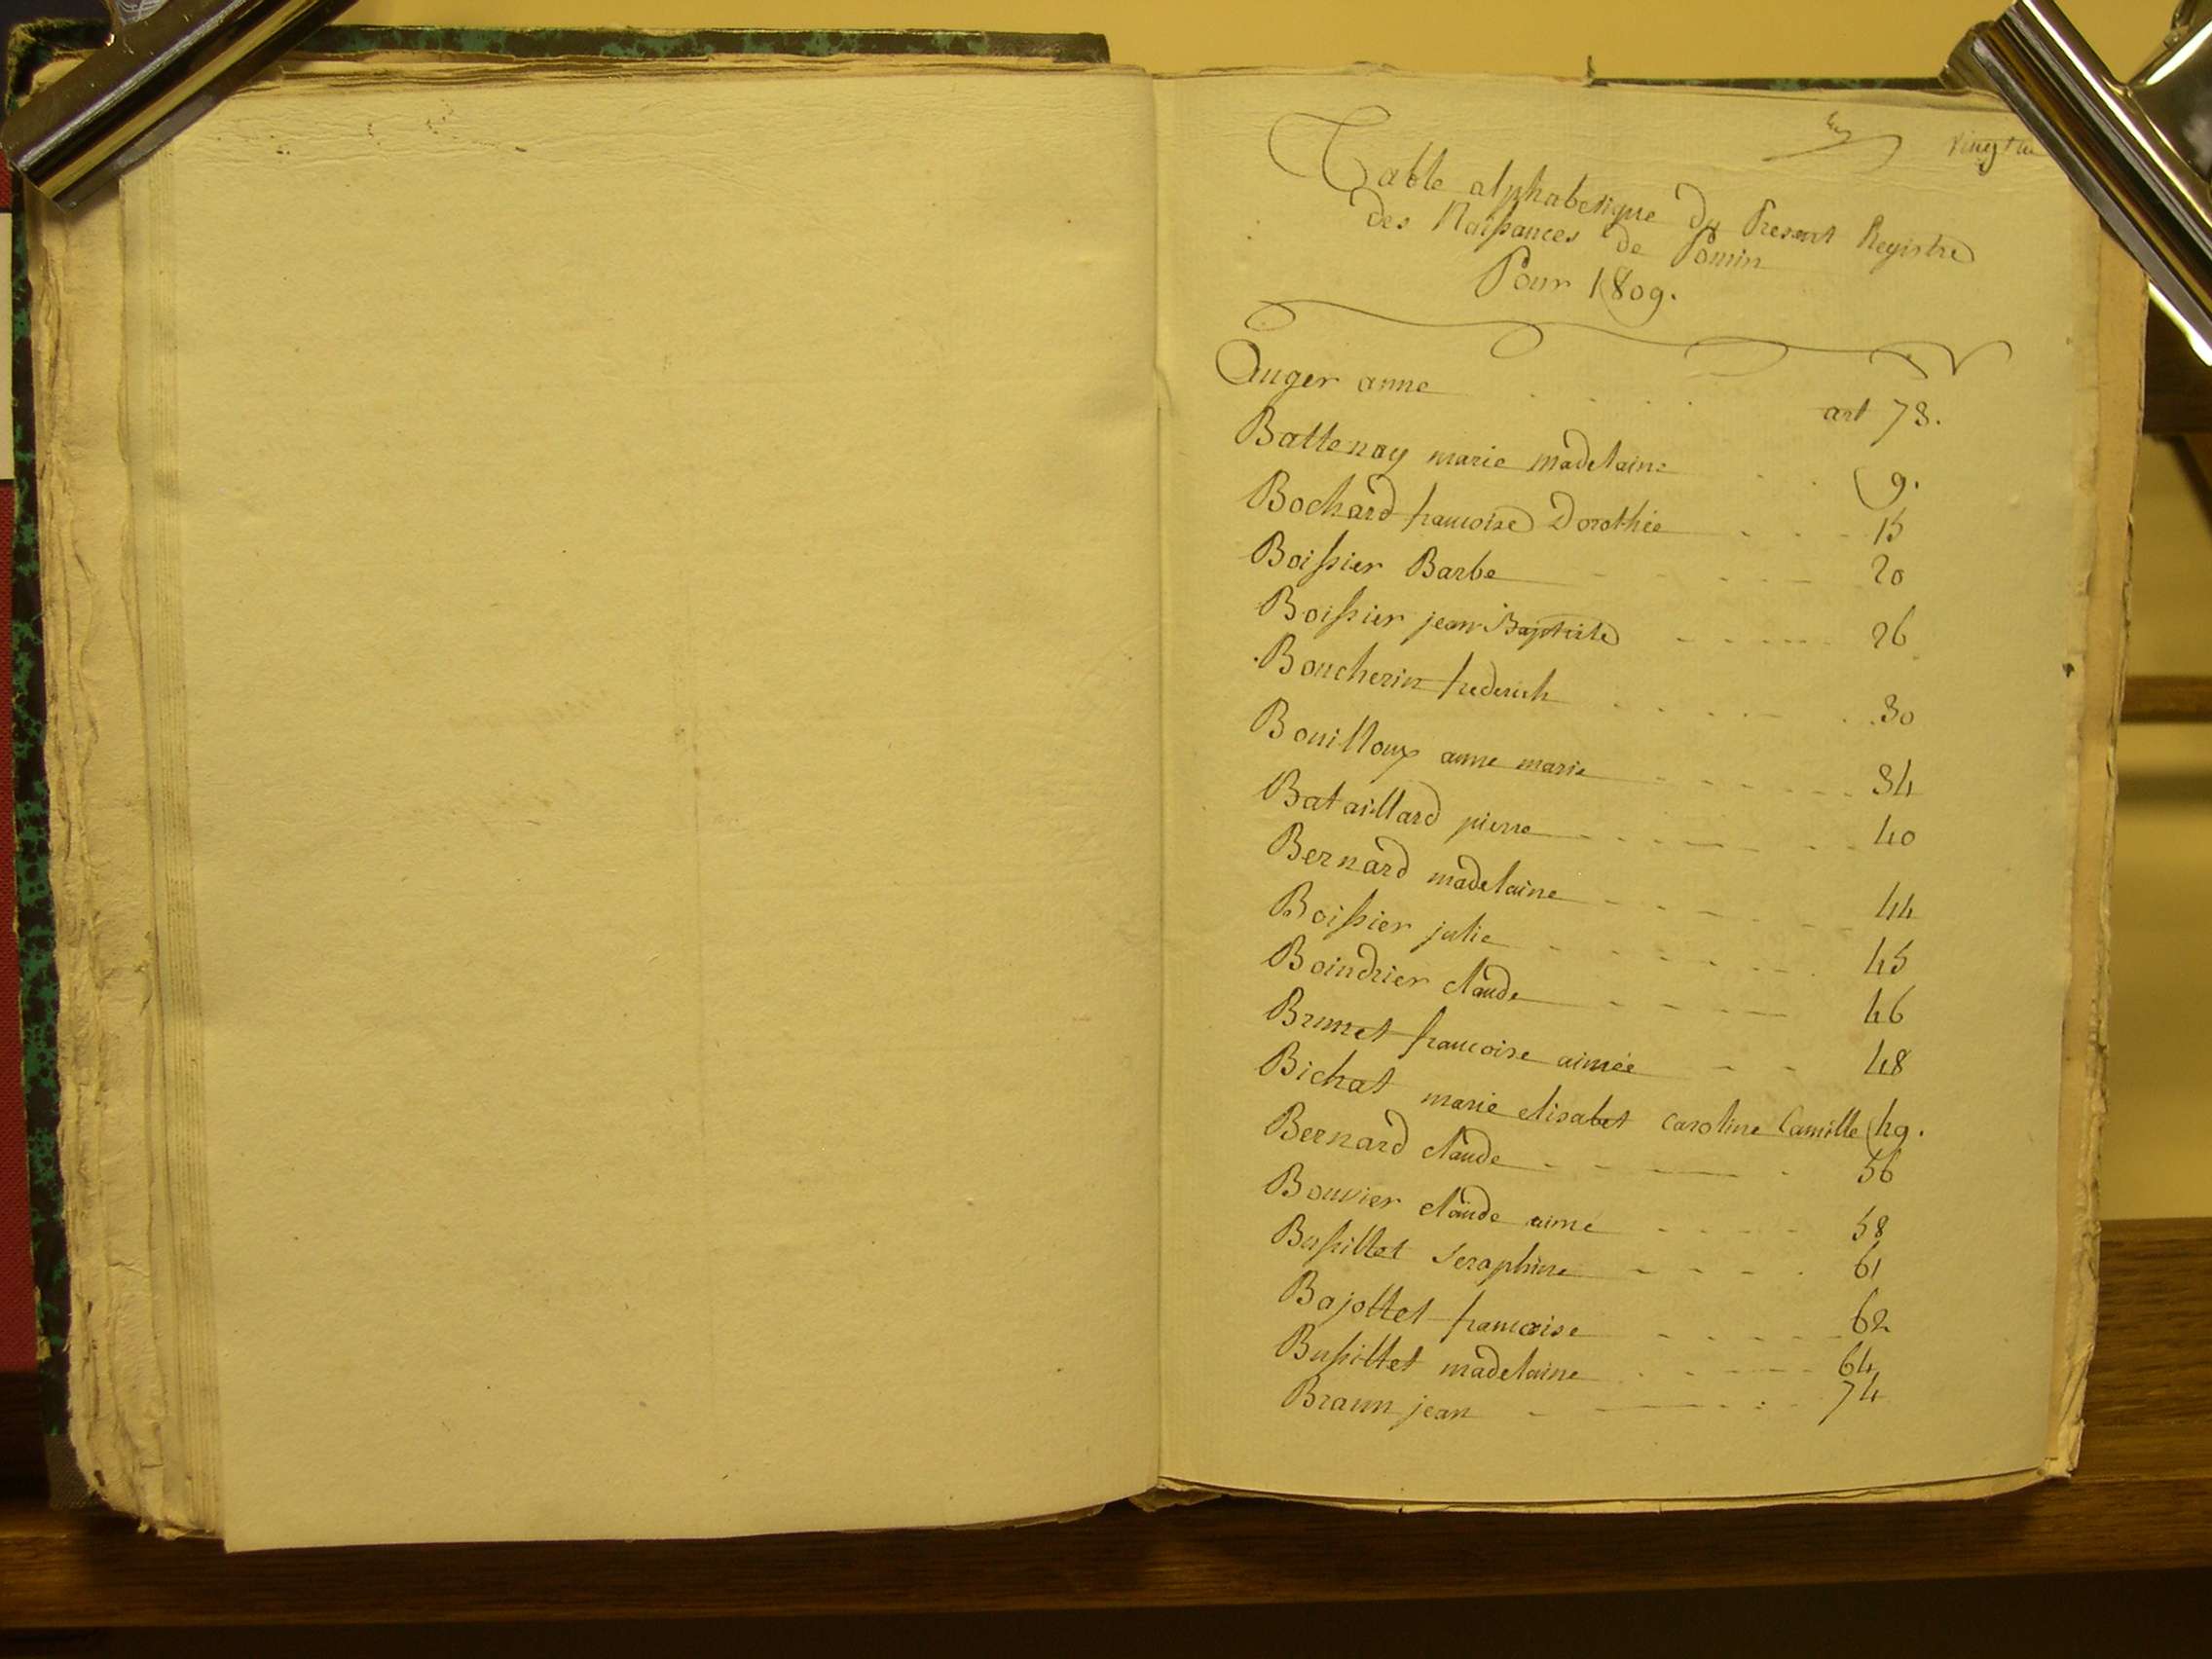 Table alphabetique du Present Registre
des Naissances de Pomin
Pour 1809.
Auger anne art 73.
Battenay marie madelaine 9.
Bochard francoise Dorothée 15
Boissier Barbe 20
Boissier jean Baptiste 26
Boucherin frederich 30
Bouilloux anne marie 34
Bataillard pierre 40
Bernard madelaine 44
Boissier julie 45
Boindrier claude 46
Brunet francoise aimée 48
Bichat marie elisabet Caroline Camille 49.
Bernard claude 56
Bouvier claude aimé 58
Bussillet Seraphine 61
Bajottet francoise 62
Bussillet madelaine 64
Braun jean 74